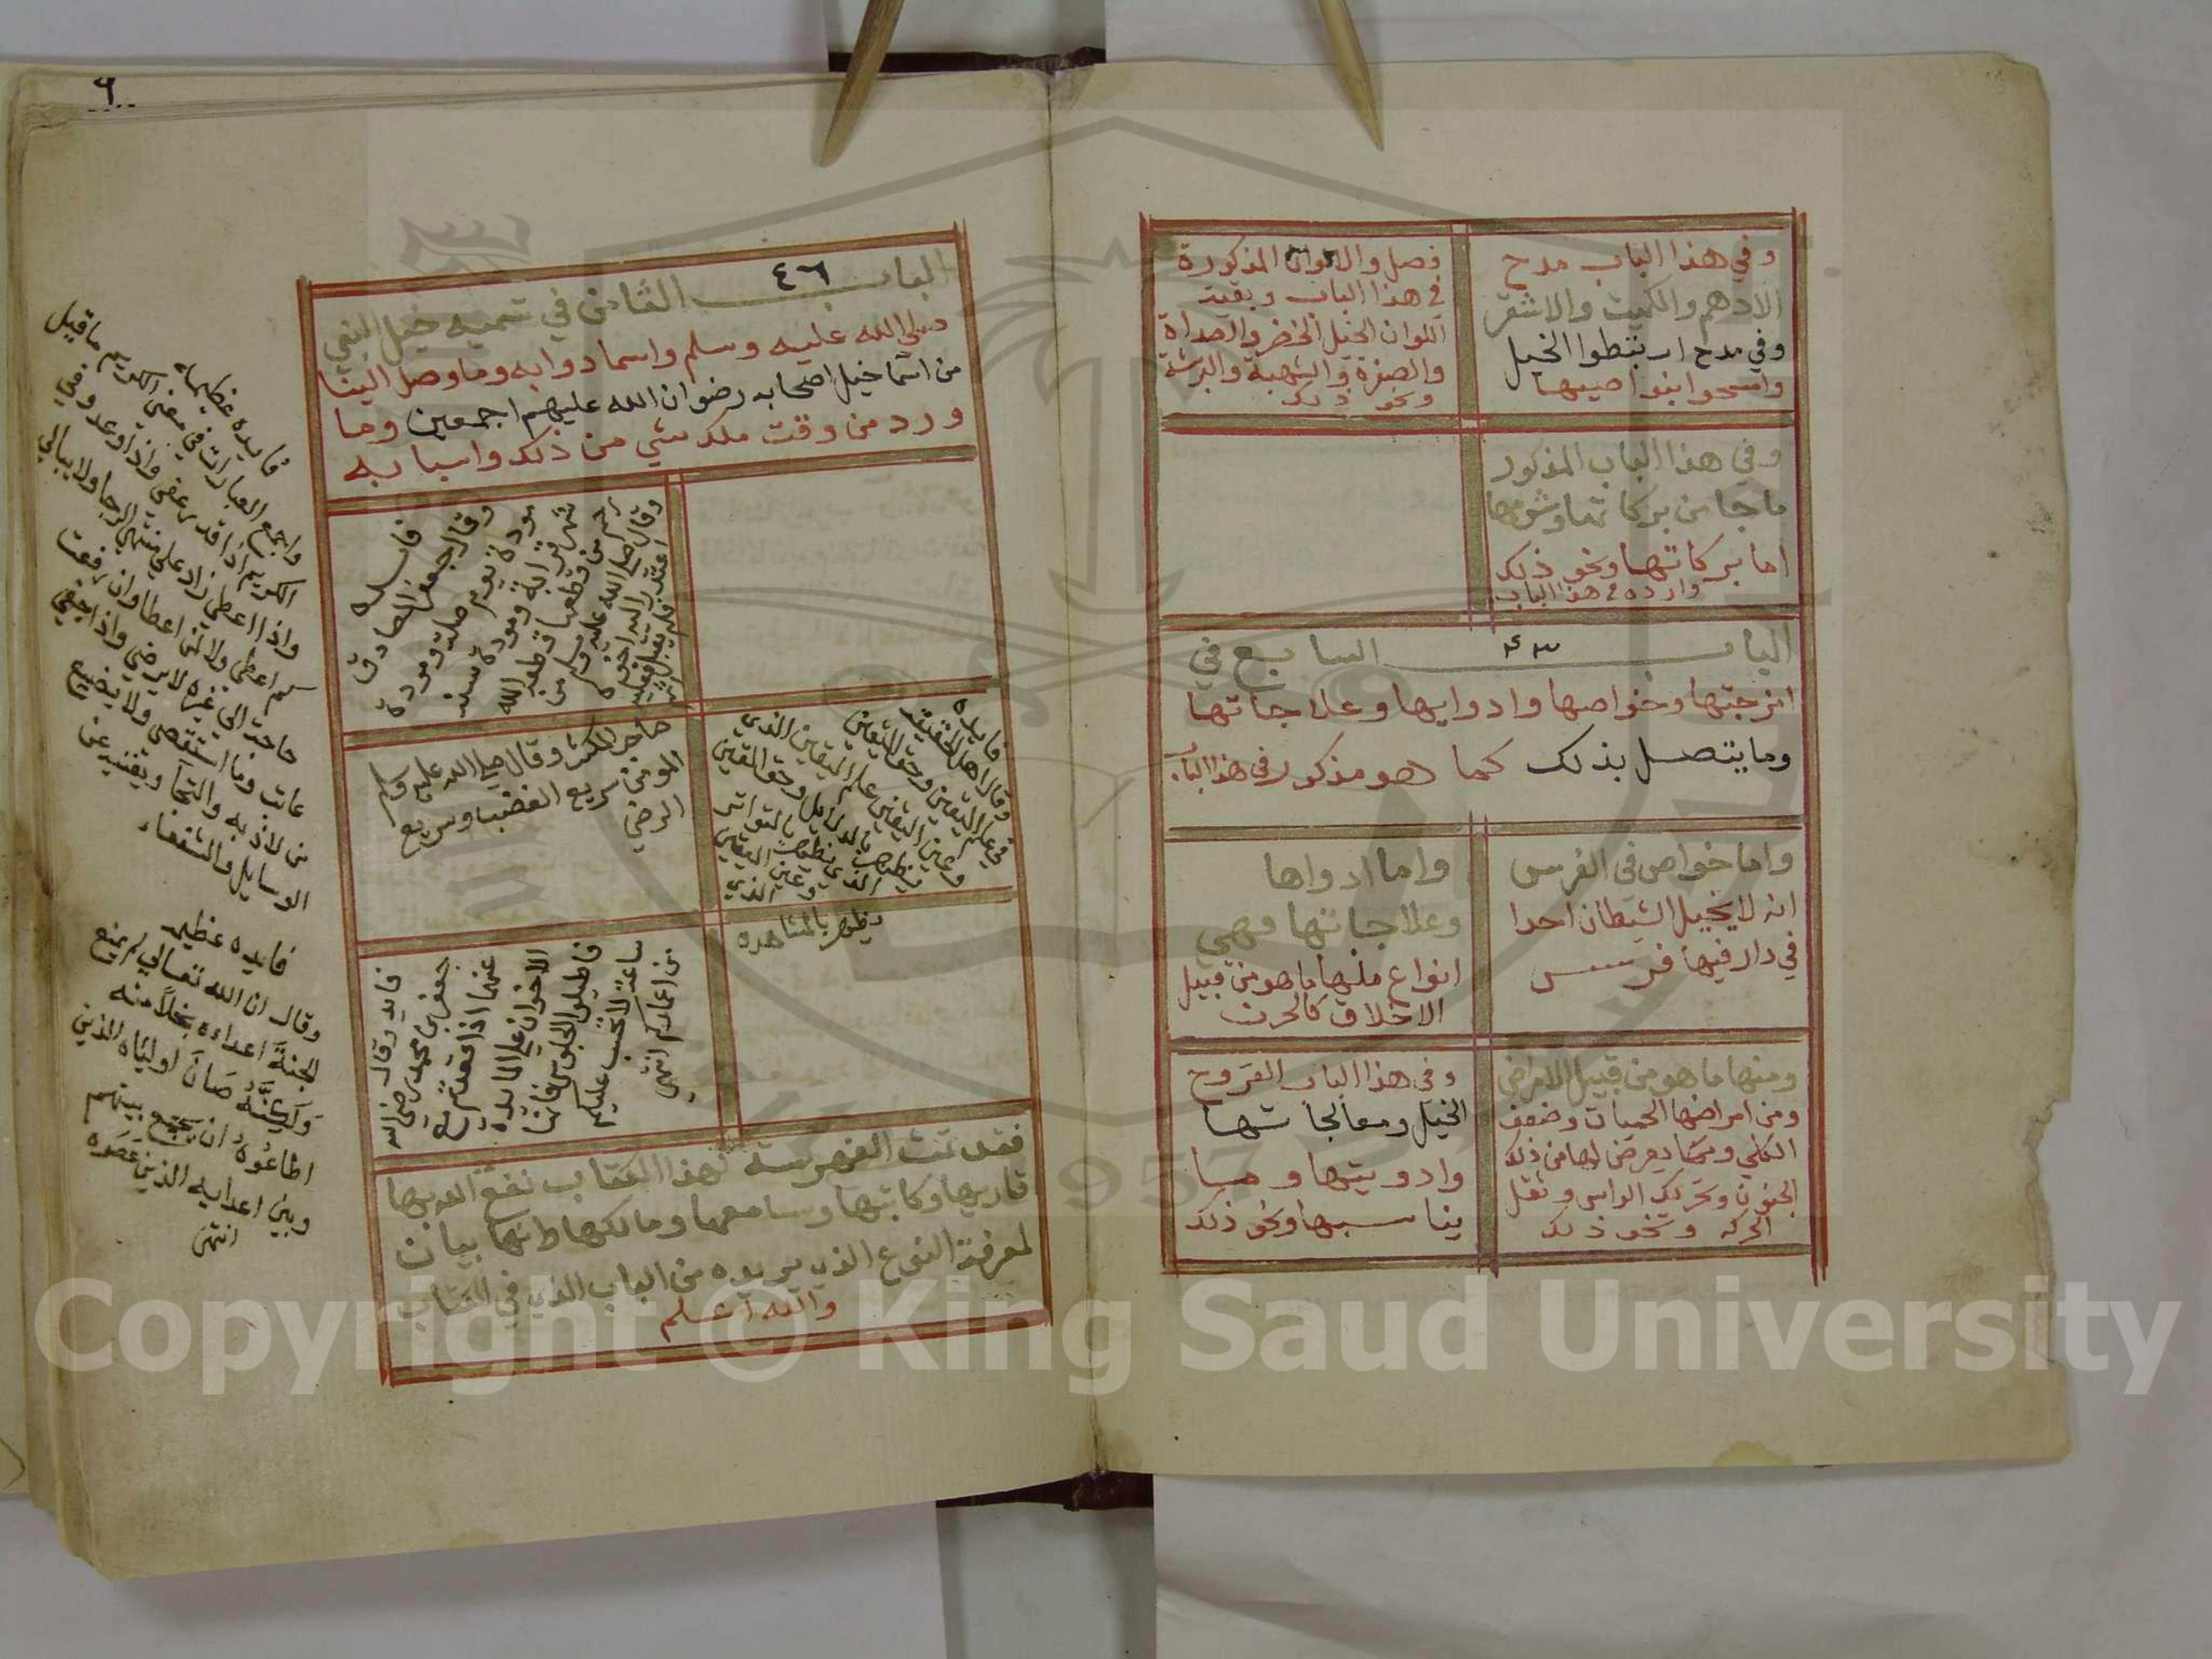 وفي هذا الباب مدح
الادهم والكميت والاشقر
وفي مدح ارتبطوا الخيل
وامسحوا بنواصيها
فصل والالوان المذكورة
في هذا الباب وبقية
اللوان الخيل الخضر والصداة
والصفرة والشهبة والبرشة
ونحو ذلك
وفي هذا الباب المذكور
ما جا من بركاتها وشومها
اما بركاتها ونحو ذلك
وارده في هذا الباب
الباب ٤٣ السابع في
امزجتها وخواصها وادوايها وعلاجاتها
وما يتصل بذلك كما هو مذكور في هذا الباب
واما خواص في الفرس
انه لا يخبل الشيطان احدا
في دار فيها فرس
واما ادواها
وعلاجاتها فهي
انواع منها ما هو من قبيل
الاخلاق كالحرن
ومنها ما هو من قبيل الامراض
ومن امراضها الحميات وضعف
الكلي ومما يعرض لها من ذلك
الجنون وتحريك الراس وثقل
الحركه ونحو ذلك
وفي هذا الباب القروح
الخيل ومعالجاتها
وادويتها وما
يناسبها ونحو ذلك
٦
الباب ٤٦ الثامن في تسميه خيل النبي
صلى الله عليه وسلم واسما دوابه وما وصل الينا
من اسما خيل اصحابه رضوان الله عليهم اجمعين وما
ورد من وقت ملك شي من ذلك واسبابه
فايده
وقال جعفر الصادق
مودة يوم صلة ومودة
شهر قرابة ومودة سنة
رحم من قطعها قطعه الله
وقال صلى الله عليه وسلم من
اعتذر اليه اخوه
فايده
وقال اهل الحقيقه
في علم اليقين وحق اليقين
وعين اليقين علم اليقين الذي
يظهر بالدلايل وحق اليقين
الذي يظهر بالتواتر
وعين اليقين
الذي
يظهر بالمشاهده
وقال صلى الله عليه وسلم
المومن سريع الغضب وسريع
الرضي
فايده وقال
جعفر بن محمد رضي الله
عنهما اذا قعدتم مع
الاخوان على المايده
فاطيلوا الجلوس فانها
ساعة لا تحسب عليكم
من اعماركم انتهى
فقد تمت الفهرسة لهذا الكتاب نفع الله بها
قاريها وكاتبها وسامعها ومالكها طانها بيان
لمعرفة النوع الذي يريده من الباب الذي في الكتاب
والله اعلم
فايده عظيمه
واجمع العبارات في معنى الكريم ما قيل
الكريم اذا قدر عفى واذا وعد وفي
واذا اعطي زاد على منتهى الرجا ولا يبالي
كم اعطى ولا لمن اعطا وان رفعت
حاجة الى غيره لا يرضى واذا جفي
عاتب وما استقصى ولا يضيع
من لاذ به والتجا ويغنيه عن
الوسايل والشفعاء
فايده عظيمه
وقال ان الله تعالي لم يمنع
الجنة اعداءه بخلا منه
ولكنه صان اولياه الذين
اطاعوه ان يجمع بينهم
وبين اعدايه الذين عصوه
انتهى
Copyright © King Saud University
1957